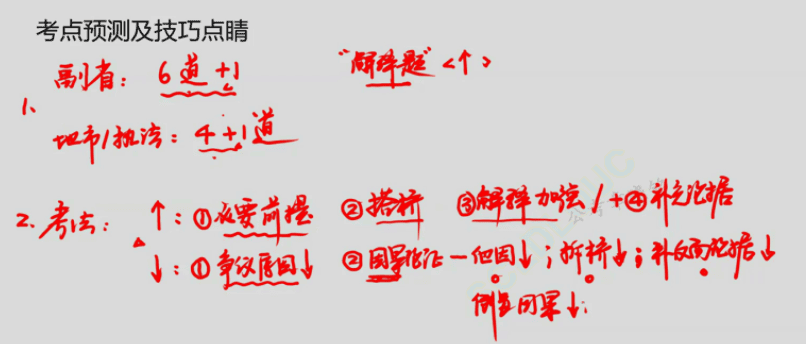 考点预测及技巧点睛
副省：6道+1 "解释题"<↑>
1、
地市/执法：4+1道
2、考法：↑：①必要前提 ②搭桥 ③解释加强/+④补充论据
↓：①争议原因↓ ②因果论证—他因↓；拆桥↓；补反面论据↓
倒置因果↓；